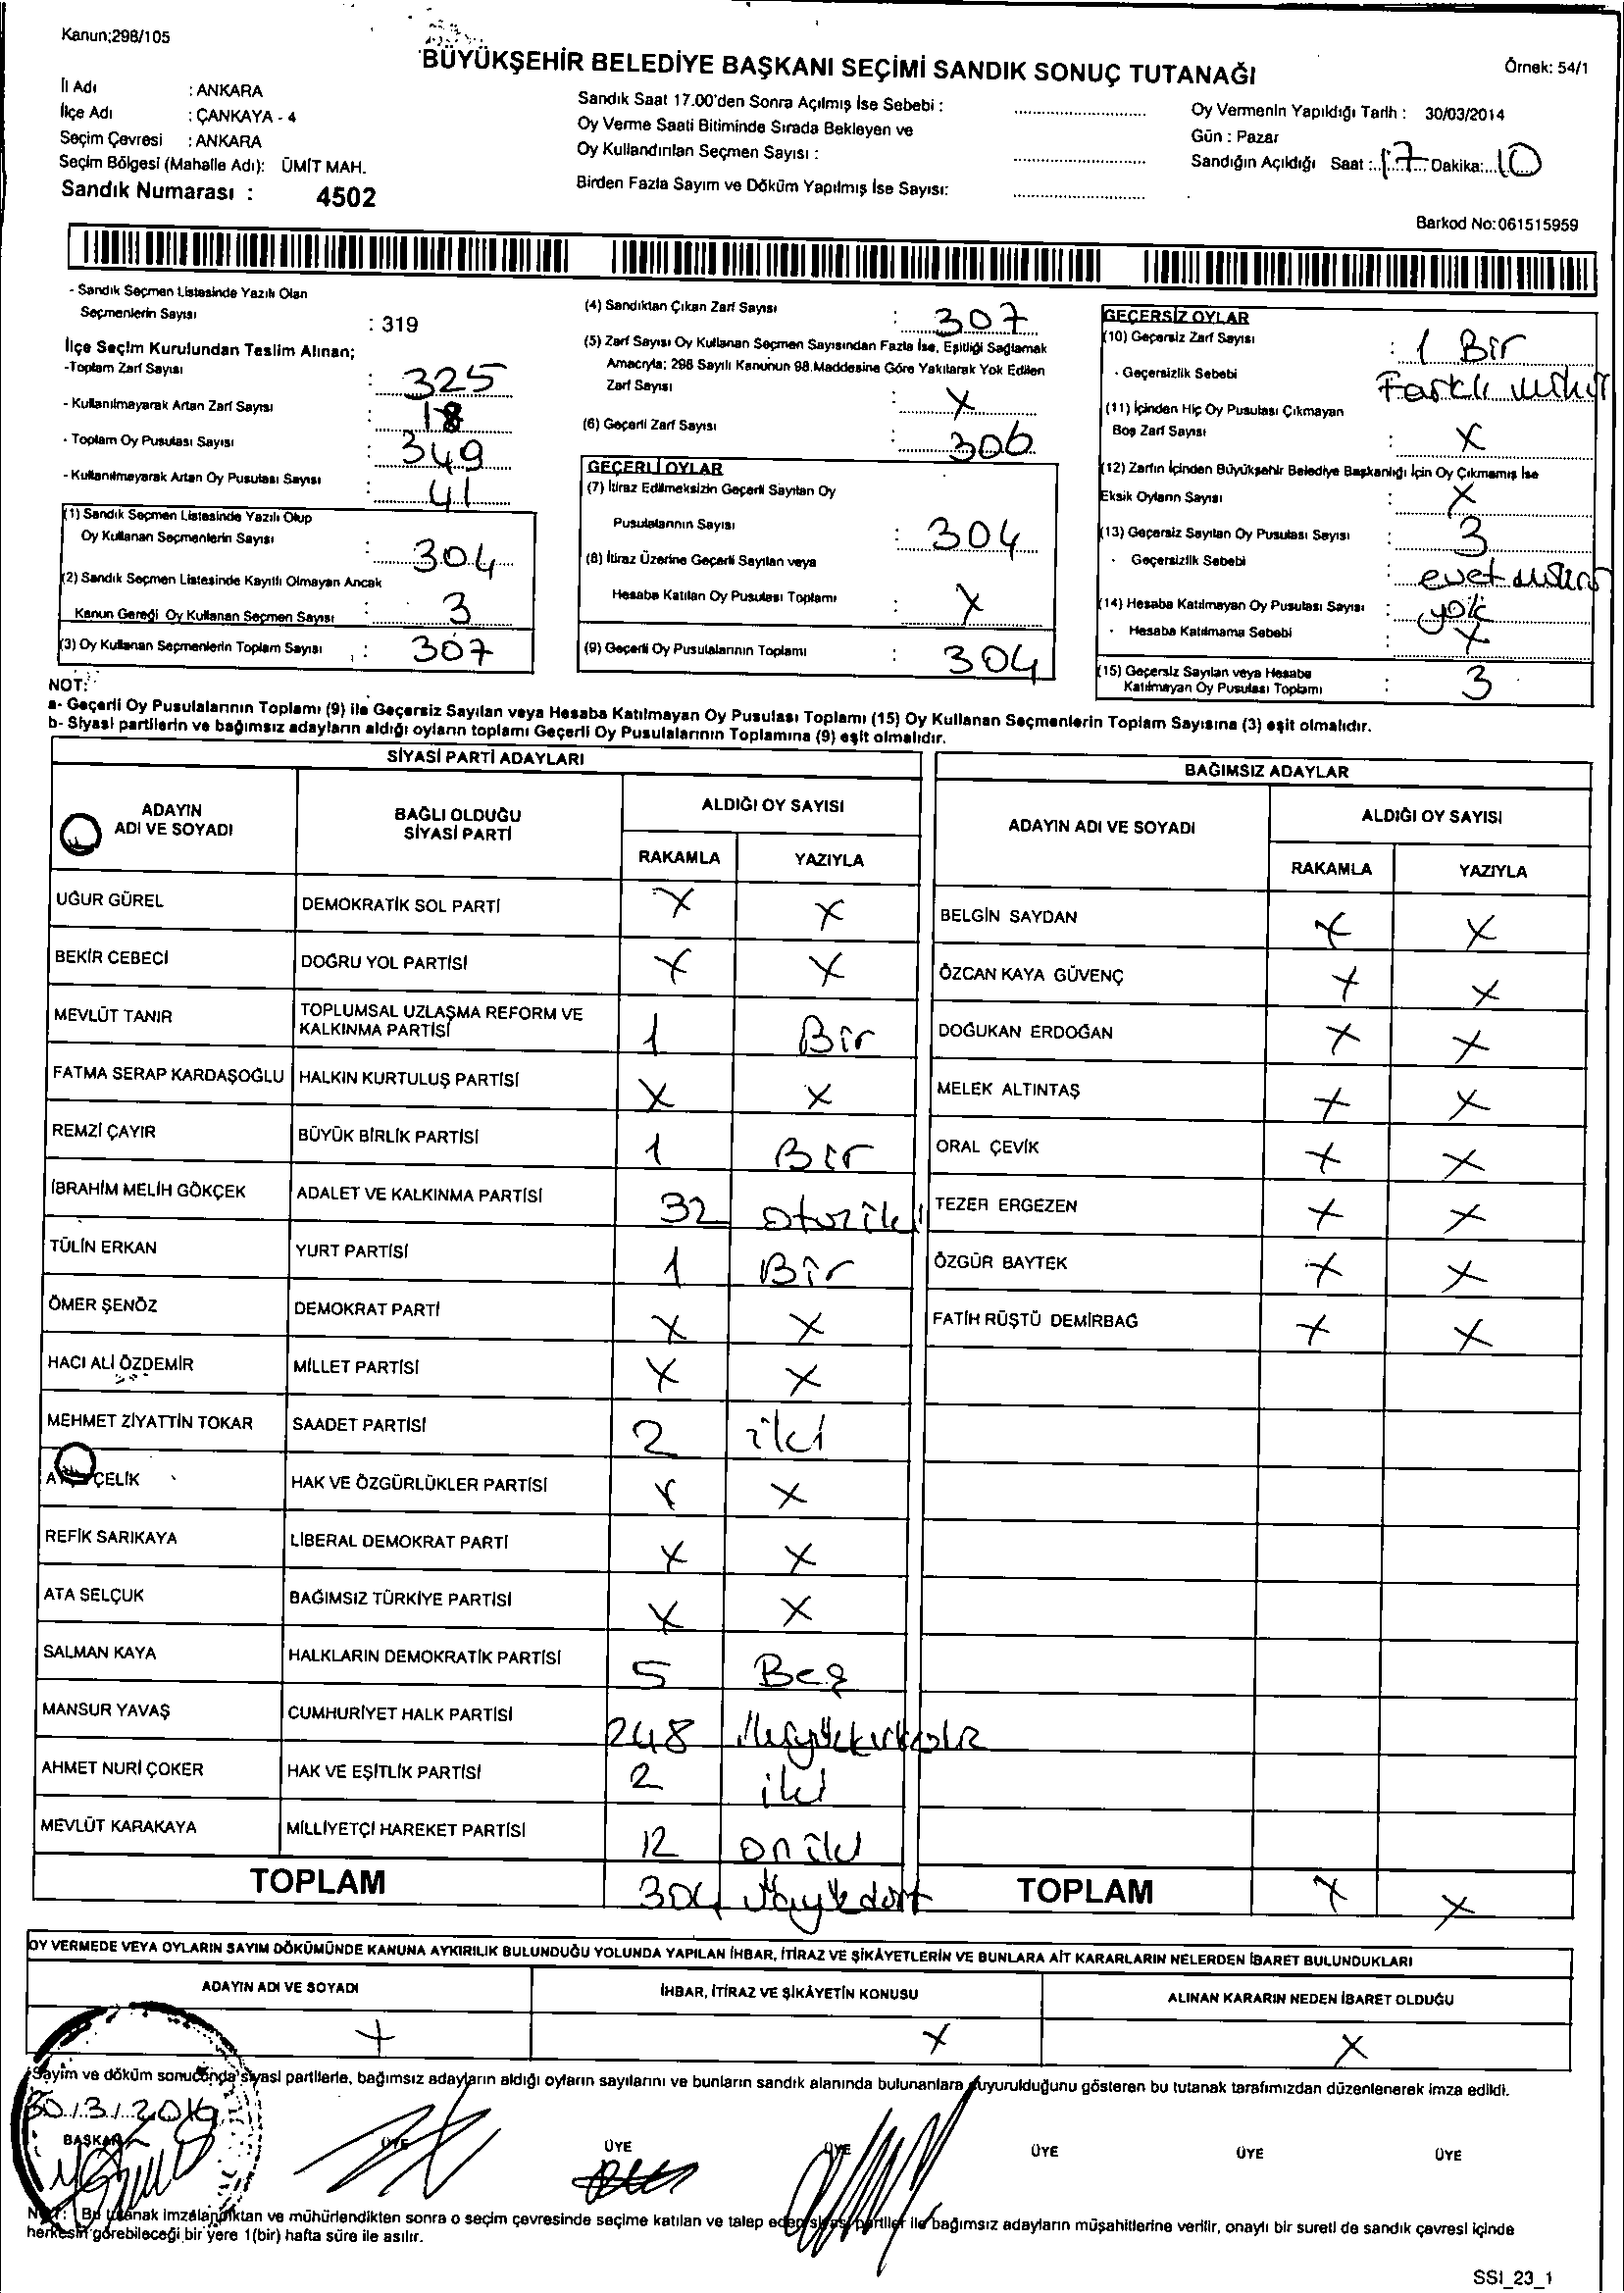 Kanun;298/105
BÜYÜKŞEHİR BELEDİYE BAŞKANI SEÇİMİ SANDIK SONUÇ TUTANAĞI
Örnek: 54/1
İl Adı : ANKARA
İlçe Adı : ÇANKAYA - 4
Seçim Çevresi : ANKARA
Seçim Bölgesi (Mahalle Adı): ÜMİT MAH.
Sandık Numarası : 4502
Sandık Saat 17.00'den Sonra Açılmış İse Sebebi :
Oy Verme Saati Bitiminde Sırada Bekleyen ve
Oy Kullandırılan Seçmen Sayısı :
Birden Fazla Sayım ve Döküm Yapılmış İse Sayısı:
Oy Vermenin Yapıldığı Tarih : 30/03/2014
Gün : Pazar
Sandığın Açıldığı Saat : 17 Dakika: 10
Barkod No:061515959
- Sandık Seçmen Listesinde Yazılı Olan
Seçmenlerin Sayısı : 319
İlçe Seçim Kurulundan Teslim Alınan;
-Toplam Zarf Sayısı : 325
- Kullanılmayarak Artan Zarf Sayısı : 18
- Toplam Oy Pusulası Sayısı : 349
- Kullanılmayarak Artan Oy Pusulası Sayısı : 41
(1) Sandık Seçmen Listesinde Yazılı Olup
Oy Kullanan Seçmenlerin Sayısı : 304
(2) Sandık Seçmen Listesinde Kayıtlı Olmayan Ancak
Kanun Gereği Oy Kullanan Seçmen Sayısı : 3
(3) Oy Kullanan Seçmenlerin Toplam Sayısı : 307
(4) Sandıktan Çıkan Zarf Sayısı : 307
(5) Zarf Sayısı Oy Kullanan Seçmen Sayısından Fazla İse, Eşitliği Sağlamak
Amacıyla; 298 Sayılı Kanunun 98.Maddesine Göre Yakılarak Yok Edilen
Zarf Sayısı : X
(6) Geçerli Zarf Sayısı : 306
GEÇERLİ OYLAR
(7) İtiraz Edilmeksizin Geçerli Sayılan Oy
Pusulalarının Sayısı : 304
(8) İtiraz Üzerine Geçerli Sayılan veya
Hesaba Katılan Oy Pusulası Toplamı : X
(9) Geçerli Oy Pusulalarının Toplamı : 304
GEÇERSİZ OYLAR
(10) Geçersiz Zarf Sayısı : 1 Bir
- Geçersizlik Sebebi Farklı
(11) İçinden Hiç Oy Pusulası Çıkmayan
Boş Zarf Sayısı : X
(12) Zarfın İçinden Büyükşehir Belediye Başkanlığı İçin Oy Çıkmamış İse
Eksik Oyların Sayısı : X
(13) Geçersiz Sayılan Oy Pusulası Sayısı : 3
- Geçersizlik Sebebi : evet
(14) Hesaba Katılmayan Oy Pusulası Sayısı : yok
- Hesaba Katılmama Sebebi : X
(15) Geçersiz Sayılan veya Hesaba
Katılmayan Oy Pusulası Toplamı : 3
NOT:
a- Geçerli Oy Pusulalarının Toplamı (9) ile Geçersiz Sayılan veya Hesaba Katılmayan Oy Pusulası Toplamı (15) Oy Kullanan Seçmenlerin Toplam Sayısına (3) eşit olmalıdır.
b- Siyasi partilerin ve bağımsız adayların aldığı oyların toplamı Geçerli Oy Pusulalarının Toplamına (9) eşit olmalıdır.
SİYASİ PARTİ ADAYLARI
ADAYIN ADI VE SOYADI BAĞLI OLDUĞU SİYASİ PARTİ ALDIĞI OY SAYISI
RAKAMLA YAZIYLA
UĞUR GÜREL DEMOKRATİK SOL PARTİ X X
BEKİR CEBECİ DOĞRU YOL PARTİSİ X X
MEVLÜT TANIR TOPLUMSAL UZLAŞMA REFORM VE KALKINMA PARTİSİ 1 Bir
FATMA SERAP KARDAŞOĞLU HALKIN KURTULUŞ PARTİSİ X X
REMZİ ÇAYIR BÜYÜK BİRLİK PARTİSİ 1 Bir
İBRAHİM MELİH GÖKÇEK ADALET VE KALKINMA PARTİSİ 32 otuziki
TÜLİN ERKAN YURT PARTİSİ 1 Bir
ÖMER ŞENÖZ DEMOKRAT PARTİ X X
HACI ALİ ÖZDEMİR MİLLET PARTİSİ X X
MEHMET ZİYATTİN TOKAR SAADET PARTİSİ 2 iki
ÇELİK HAK VE ÖZGÜRLÜKLER PARTİSİ X X
REFİK SARIKAYA LİBERAL DEMOKRAT PARTİ X X
ATA SELÇUK BAĞIMSIZ TÜRKİYE PARTİSİ X X
SALMAN KAYA HALKLARIN DEMOKRATİK PARTİSİ 5 Beş
MANSUR YAVAŞ CUMHURİYET HALK PARTİSİ 248
AHMET NURİ ÇOKER HAK VE EŞİTLİK PARTİSİ 2 iki
MEVLÜT KARAKAYA MİLLİYETÇİ HAREKET PARTİSİ 12 oniki
TOPLAM 304
BAĞIMSIZ ADAYLAR
ADAYIN ADI VE SOYADI ALDIĞI OY SAYISI
RAKAMLA YAZIYLA
BELGİN SAYDAN X X
ÖZCAN KAYA GÜVENÇ X X
DOĞUKAN ERDOĞAN X X
MELEK ALTINTAŞ X X
ORAL ÇEVİK X X
TEZER ERGEZEN X X
ÖZGÜR BAYTEK X X
FATİH RÜŞTÜ DEMİRBAĞ X X
TOPLAM X X
OY VERMEDE VEYA OYLARIN SAYIM DÖKÜMÜNDE KANUNA AYKIRILIK BULUNDUĞU YOLUNDA YAPILAN İHBAR, İTİRAZ VE ŞİKÂYETLERİN VE BUNLARA AİT KARARLARIN NELERDEN İBARET BULUNDUKLARI
ADAYIN ADI VE SOYADI İHBAR, İTİRAZ VE ŞİKÂYETİN KONUSU ALINAN KARARIN NEDEN İBARET OLDUĞU
X X X
Sayım ve döküm sonucunda siyasi partilerle, bağımsız adayların aldığı oyların sayılarını ve bunların sandık alanında bulunanlara duyurulduğunu gösteren bu tutanak tarafımızdan düzenlenerek imza edildi.
30/3/2014
BAŞKAN ÜYE ÜYE ÜYE ÜYE ÜYE ÜYE
NOT: Bu tutanak imzalandıktan ve mühürlendikten sonra o seçim çevresinde seçime katılan ve talep eden siyasi partiler ile bağımsız adayların müşahitlerine verilir, onaylı bir sureti de sandık çevresi içinde
herkesin görebileceği bir yere 1(bir) hafta süre ile asılır.
SSI_23_1